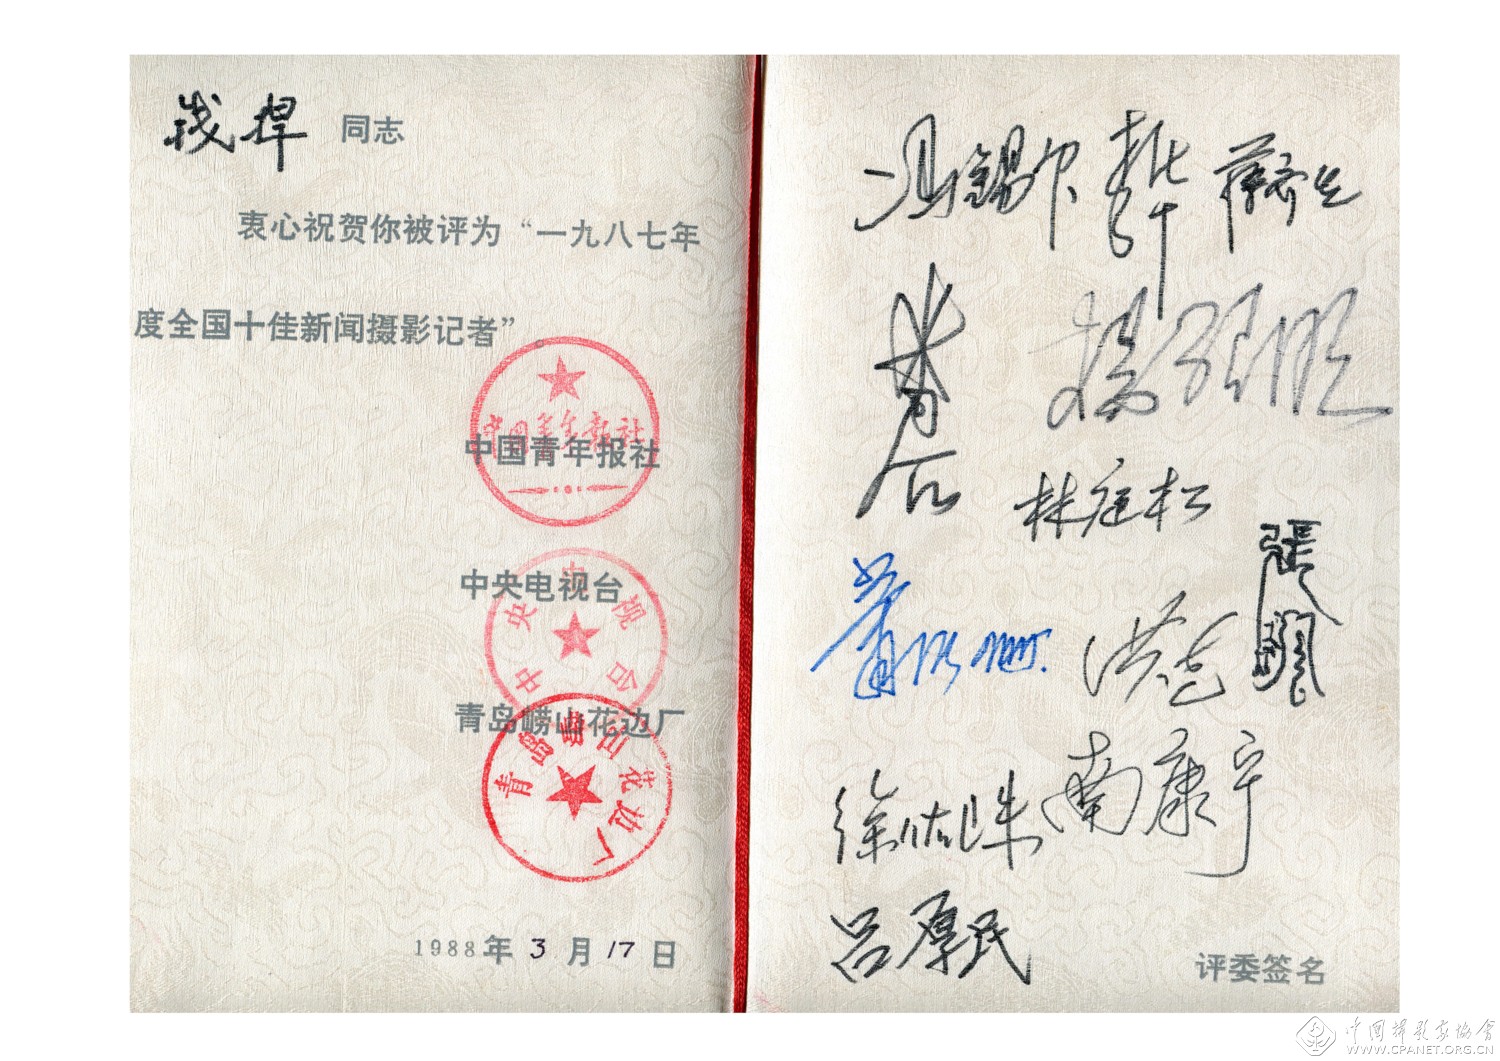 钱捍 同志
衷心祝贺你被评为“一九八七年
度全国十佳新闻摄影记者”。
中国青年报社
中国青年报社
中央电视台
中央电视台
青岛崂山花边厂
青岛崂山花边厂
1988年3月17日
冯锡尔
蒋齐生
杨绍明
林庭松
張
洪克
徐佑珠
南康宁
吕厚民
评委签名
中国摄影家协会
WWW.CPANET.ORG.CN